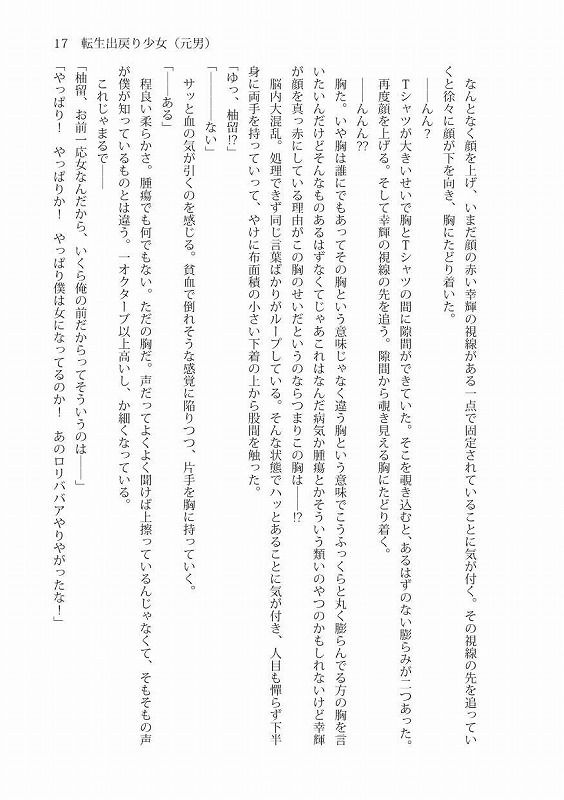 17　転生出戻り少女（元男）
　なんとなく顔を上げ、いまだ顔の赤い幸輝の視線がある一点で固定されていることに気が付く。その視線の先を追ってい
くと徐々に顔が下を向き、胸にたどり着いた。
　――んん？
　Tシャツが大きいせいで胸とTシャツの間に隙間ができていた。そこを覗き込むと、あるはずのない膨らみが二つあった。
　再度顔を上げる。そして幸輝の視線の先を追う。隙間から覗き見える胸にたどり着く。
　――んんん⁇
　胸た。いや胸は誰にでもあってその胸という意味じゃなく違う胸という意味でこうふっくらと丸く膨らんでる方の胸を言
いたいんだけどそんなものあるはずなくてじゃあこれはなんだ病気か腫瘍とかそういう類いのやつのかもしれないけど幸輝
が顔を真っ赤にしている理由がこの胸のせいだというのならつまりこの胸は――⁉
　脳内大混乱。処理できず同じ言葉ばかりがループしている。そんな状態でハッとあることに気が付き、人目も憚らず下半
身に両手を持っていって、やけに布面積の小さい下着の上から股間を触った。
「ゆっ、柚留⁉」
「――――ない」
　サッと血の気が引くのを感じる。貧血で倒れそうな感覚に陥りつつ、片手を胸に持っていく。
「――ある」
　程良い柔らかさ。腫瘍でも何でもない。ただの胸だ。声だってよくよく聞けば上擦っているんじゃなくて、そもそもの声
が僕が知っているものとは違う。一オクターブ以上高いし、か細くなっている。
　これじゃまるで――
「柚留、お前一応女なんだから、いくら俺の前だからってそういうのは――」
「やっぱり！　やっぱりか！　やっぱり僕は女になってるのか！　あのロリババアやりやがったな！」